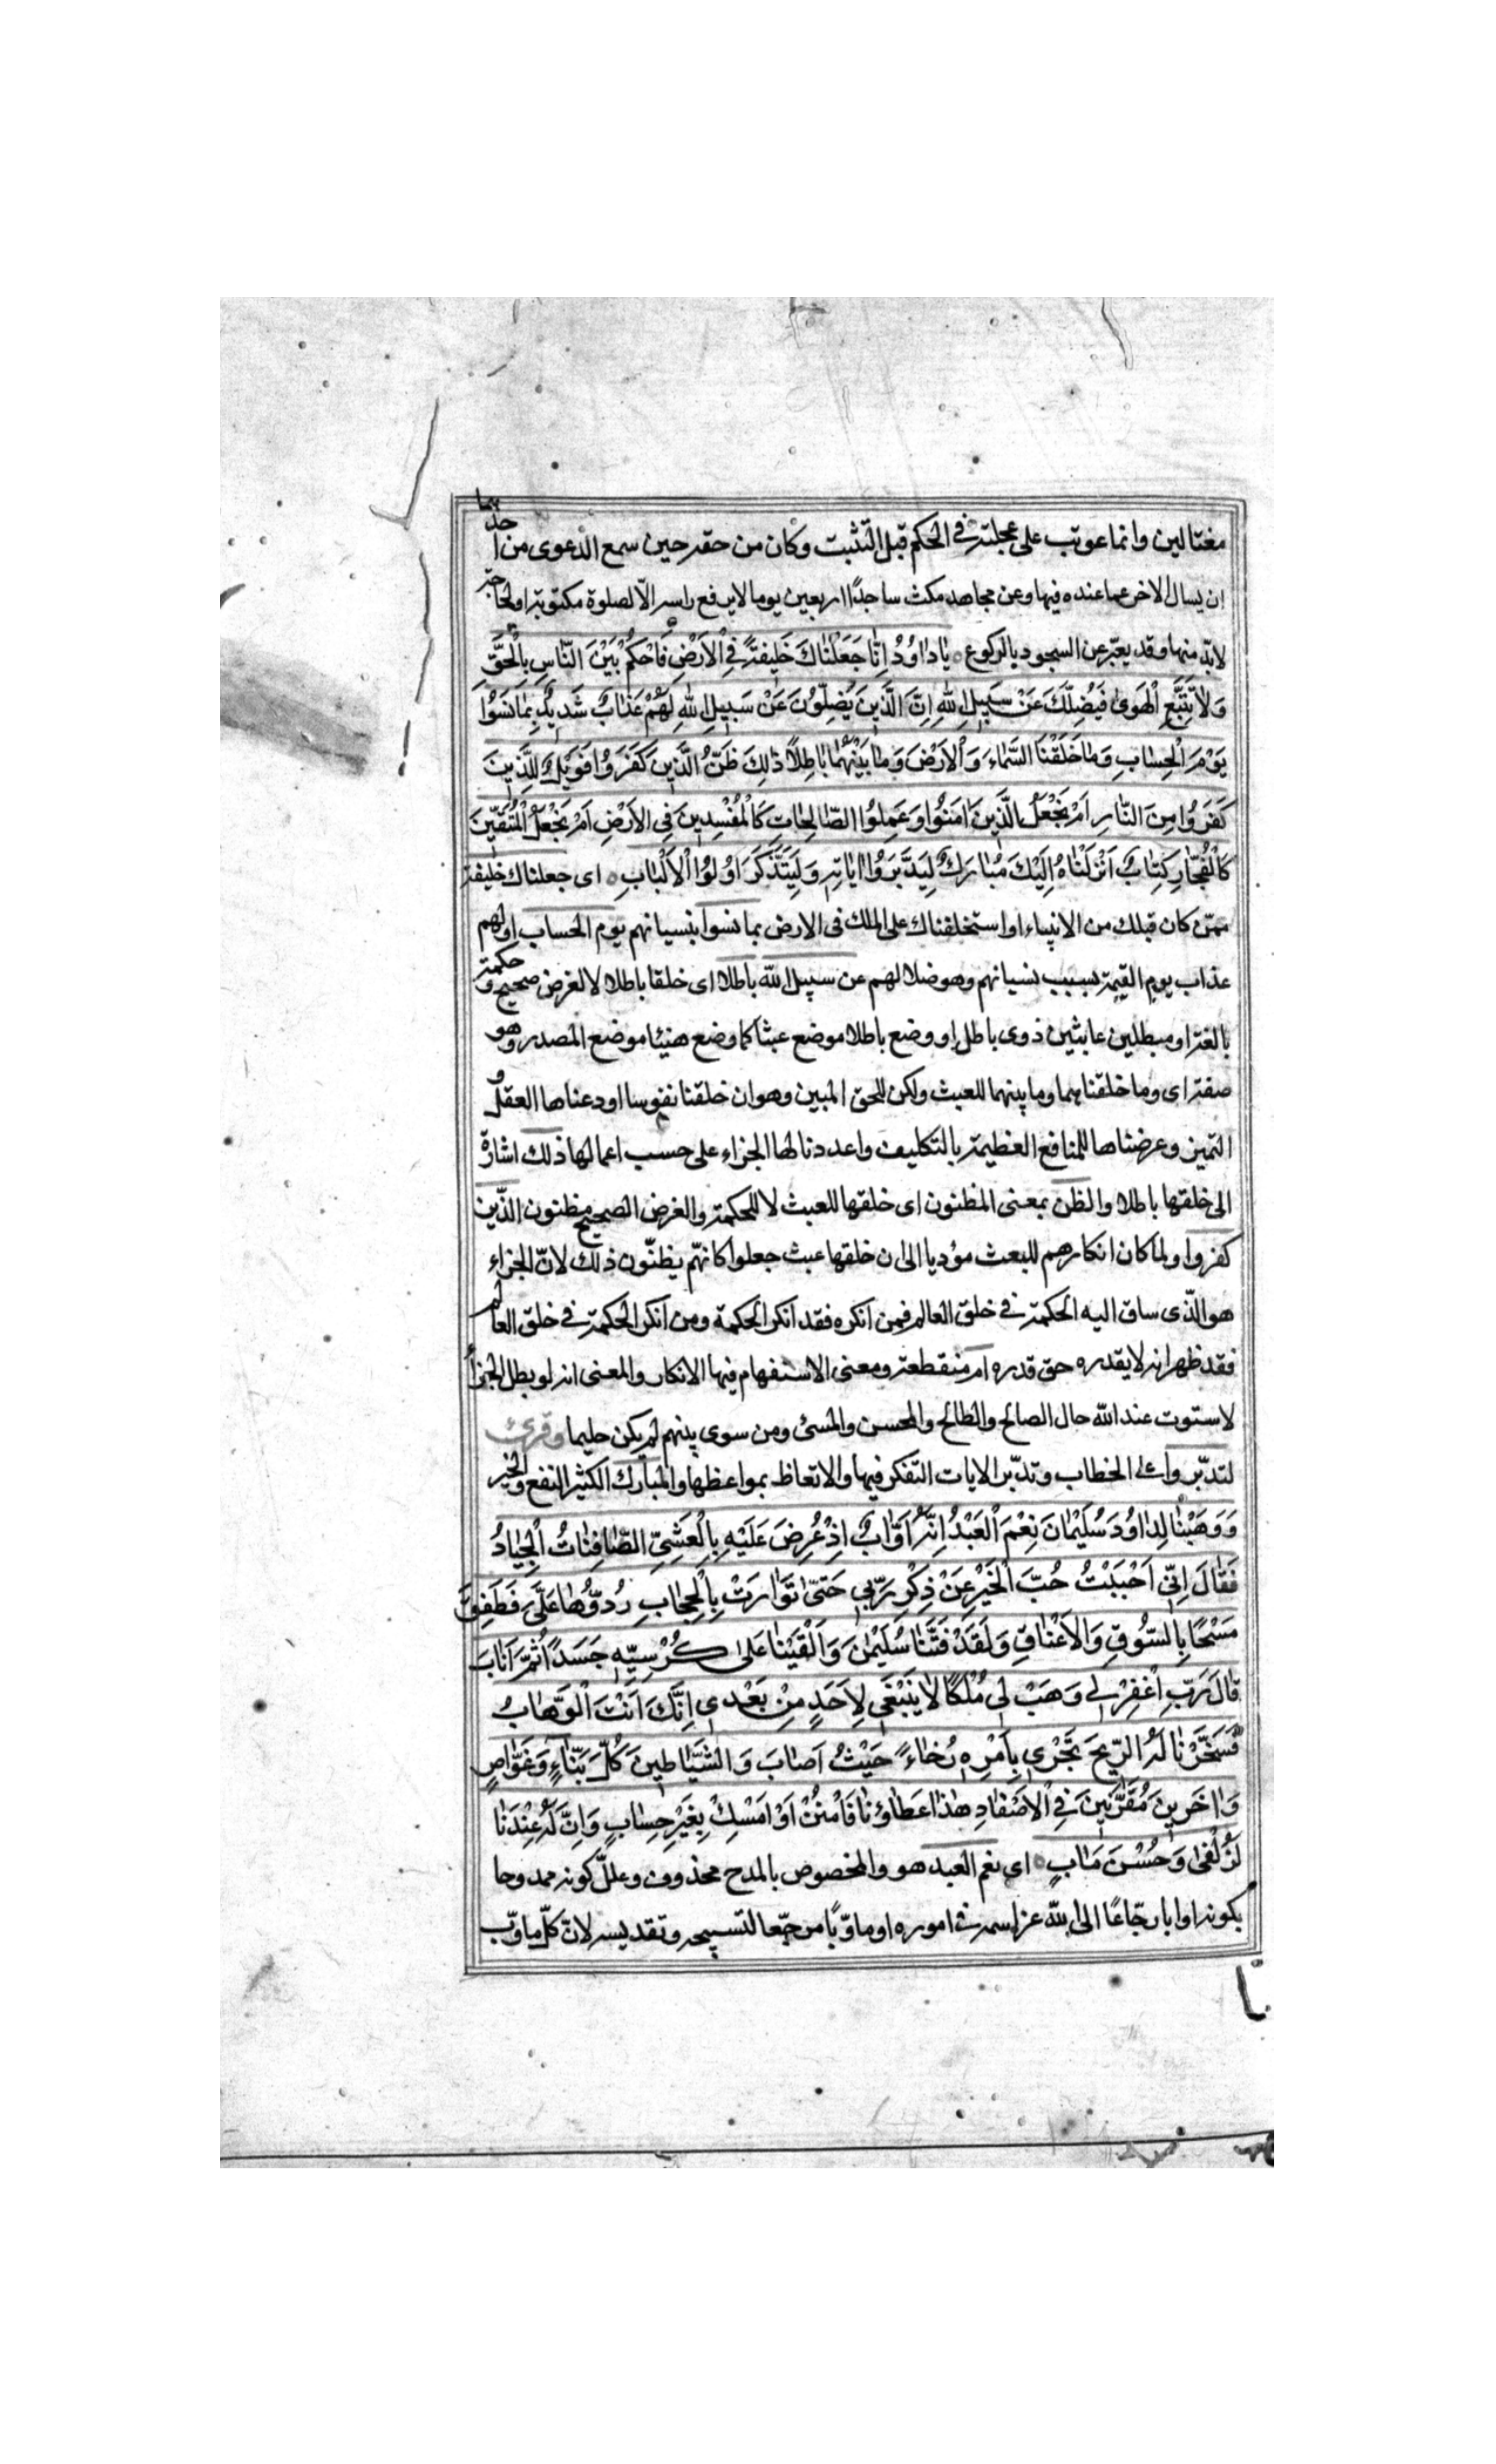 مغتالين وانما عوتب على عجلته في الحكم قبل التثبت وكان من حقه حين سمع الدعوى من احدهما
ان يسال الاخر عما عنده فيها وعن مجاهد مكث ساجدًا اربعين يوما لا يرفع راسه الّا لصلوة مكتوبة او لحاجة
لابدّ منها وقد يعبّر عن السجود بالركوع ه يٰا دٰاوُدُ اِنّٰا جَعَلْنٰاكَ خَليفَةً فِي الْاَرْضِ فَاحْكُمْ بَيْنَ النّٰاسِ بِالْحَقِّ
وَلاٰ تَتَّبِعِ الْهَوىٰ فَيُضِلَّكَ عَنْ سَبيلِ اللهِ اِنَّ الَّذينَ يَضِلُّونَ عَنْ سَبيلِ اللهِ لَهُمْ عَذٰابٌ شَديدٌ بِمٰا نَسُوا
يَوْمَ الْحِسٰابِ وَمٰا خَلَقْنَا السَّمٰاءَ وَالْاَرْضَ وَمٰا بَيْنَهُمٰا بٰاطِلاً ذٰلِكَ ظَنُّ الَّذينَ كَفَرُوا فَوَيْلٌ لِلَّذينَ
كَفَرُوا مِنَ النّٰارِ اَمْ نَجْعَلُ الَّذينَ اٰمَنُوا وَعَمِلُوا الصّٰالِحٰاتِ كَالْمُفْسِدينَ فِي الْاَرْضِ اَمْ نَجْعَلُ الْمُتَّقينَ
كَالْفُجّٰارِ كِتٰابٌ اَنْزَلْنٰاهُ اِلَيْكَ مُبٰارَكٌ لِيَدَّبَّرُوا اٰيٰاتِهِ وَلِيَتَذَكَّرَ اُولُوا الْاَلْبٰابِ ه اى جعلناك خليفة
ممّن كان قبلك من الانبياء او استخلفناك على الملك فى الارض بما نسوا بنسيانهم يوم الحساب او لهم
عذاب يوم القيمة بسبب نسيانهم وهو ضلالهم عن سبيل الله باطلا اى خلقا باطلا لا لغرض صحيح وحكمة
بالغة او مبطلين عابثين ذوى باطل او وضع باطلا موضع عبثا كما وضع هنيئا موضع المصدر وهو
صفة اى وما خلقناهما وما بينهما للعبث ولكن للحق المبين وهو ان خلقنا نفوسا اودعناها العقل و
التميز وعرضناها للمنافع العظيمة بالتكليف واعددنا لها الجزاء على حسب اعمالها ذلك اشارة
الى خلقها باطلا والظن بمعنى المظنون اى خلقها للعبث لا للحكمة والغرض الصحيح مظنون الّذين
كفروا ولما كان انكارهم للبعث مؤديا الى ن خلقها عبث جعلوا كانهّم يظنّون ذلك لانّ الجزاء
هو الّذى ساق اليه الحكمة في خلق العالم فمن انكره فقد انكر الحكمة ومن انكر الحكمة في خلق العالم
فقد ظهر انه لا يقدره حق قدره ام منقطعة ومعنى الاستفهام فيها الانكار والمعنى انه لو بطل الجزاء
لاستوت عند الله حال الصالح والطالح والمحسن والمسئ ومن سوى بينهم لم يكن حليما وقرئ
لتدبّروا على الخطاب وتدبّر الايات التفكر فيها والاتعاظ بمواعظها والمبارك الكثير النفع والخير
وَوَهَبْنٰا لِدٰاوُدَ سُلَيْمٰانَ نِعْمَ الْعَبْدُ اِنَّهُ اَوّٰابٌ اِذْ عُرِضَ عَلَيْهِ بِالْعَشِيِّ الصّٰافِنٰاتُ الْجِيٰادُ
فَقٰالَ اِنّي اَحْبَبْتُ حُبَّ الْخَيْرِ عَنْ ذِكْرِ رَبّي حَتّىٰ تَوٰارَتْ بِالْحِجٰابِ رُدُّوهٰا عَلَيَّ فَطَفِقَ
مَسْحًا بِالسُّوقِ وَالْاَعْنٰاقِ وَلَقَدْ فَتَنّٰا سُلَيْمٰنَ وَاَلْقَيْنٰا عَلىٰ كُرْسِيِّهِ جَسَدًا ثُمَّ اَنٰابَ
قٰالَ رَبِّ اغْفِرْ لي وَهَبْ لي مُلْكًا لاٰ يَنْبَغي لِاَحَدٍ مِنْ بَعْدي اِنَّكَ اَنْتَ الْوَهّٰابُ
فَسَخَّرْنٰا لَهُ الرّيحَ تَجْري بِاَمْرِهِ رُخٰاءً حَيْثُ اَصٰابَ وَالشَّيٰاطينَ كُلَّ بَنّٰاءٍ وَغَوّٰاصٍ
وَاٰخَرينَ مُقَرَّنينَ فِي الْاَصْفٰادِ هٰذٰا عَطٰاؤُنٰا فَامْنُنْ اَوْ اَمْسِكْ بِغَيْرِ حِسٰابٍ وَاِنَّ لَهُ عِنْدَنٰا
لَزُلْفىٰ وَحُسْنَ مَاٰبٍ ه اى نعم العبد هو والمخصوص بالمدح محذوف وعلل كونه ممدوحا
بكونه اوابا رجّاعًا الى الله عز اسمه في اموره او ماوّبًا مرجّعا لتسبيحه وتقديسه لانّ كلّ ماوّب